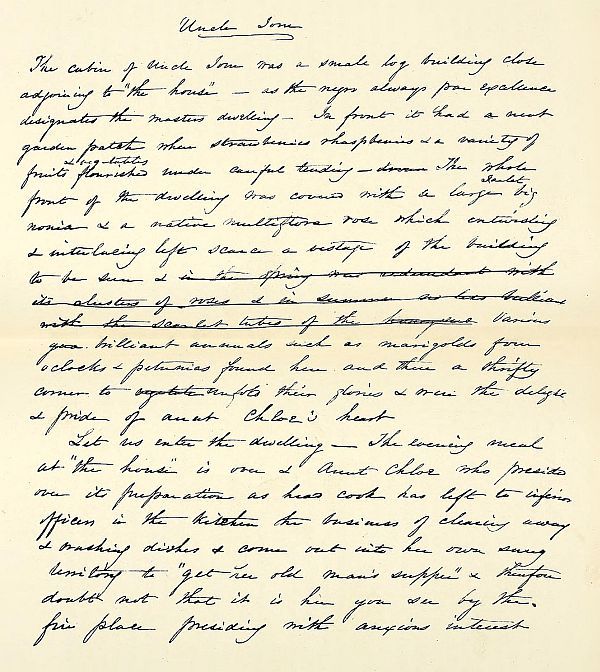 Uncle Tom
The cabin of Uncle Tom was a small log building close
adjoining to "the house" – as the negro always par excellence
designates the masters dwelling – In front it had a neat
garden patch where strawberries rhaspberries & a variety of
fruits & vegetables flourished under careful tending – The whole
front of the dwelling was covered with a large scarlet big
nonia & a native multiflora rose which entwisting
& interlacing left scarce a vestage of the building
to be seen & in the spring was redundant with
its clusters of roses & in summer no less brilliant
with the scarlet tubes of the honeysuc Various
brilliant annuals such as marigolds four
oclocks & petunias found here and there a thrifty
corner to vegetate unfold their glories & were the delight
& pride of aunt Chloe's heart
Let us enter the dwelling – The evening meal
at "the house" is over & Aunt Chloe who presided
over its preparation as head cook has left to inferior
officers in the kitchen the business of clearing away
& washing dishes & come out into her own snug
territory to "get her old man's supper" & therefore
doubt not that it is her you see by the
fire place presiding with anxious interest